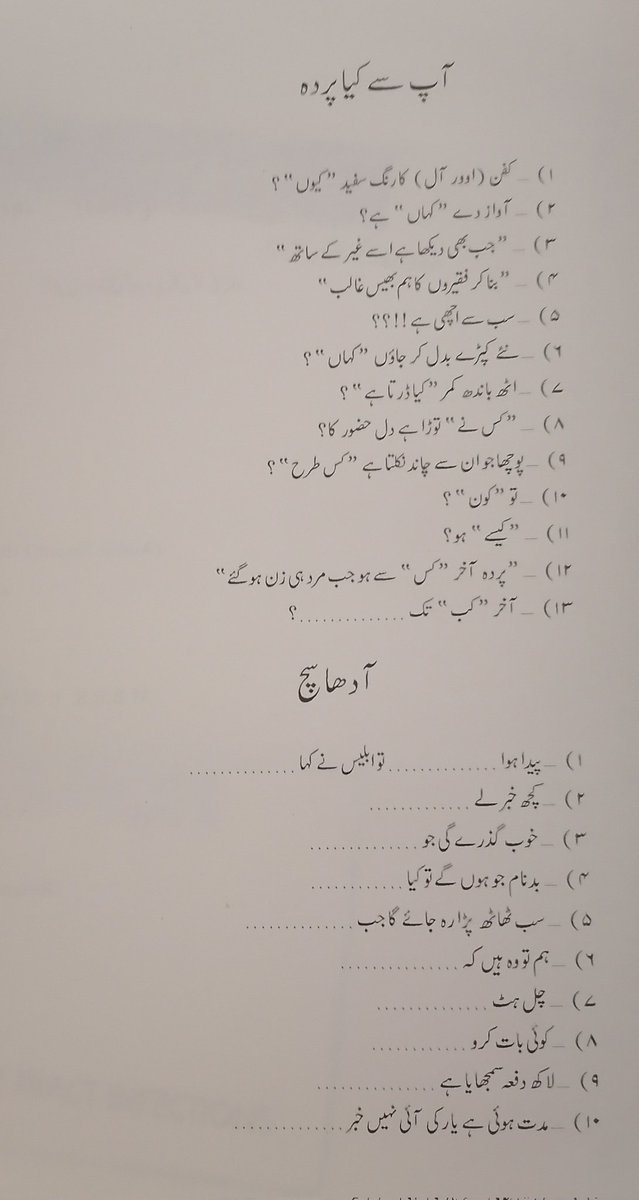 آپ سے کیا پردہ
۱) _ کفن (اوور آل) کا رنگ سفید ”کیوں“ ؟
۲) _ آواز دے ”کہاں“ ہے؟
۳) _ ”جب بھی دیکھا ہے اسے غیر کے ساتھ“
۴) _ ”بنا کر فقیروں کا ہم بھیس غالب“
۵) _ سب سے اچھی ہے !!؟؟
۶) _ نئے کپڑے بدل کر جاؤں ”کہاں“ ؟
۷) _ اٹھ باندھ کمر ”کیا ڈرتا ہے“ ؟
۸) _ ”کس نے“ توڑا ہے دل حضور کا؟
۹) _ پوچھا جو ان سے چاند نکلتا ہے ”کس طرح“ ؟
۱۰) _ تو ”کون“ ؟
۱۱) _ ”کیسے“ ہو؟
۱۲) _ ”پردہ آخر ”کس“ سے ہو جب مرد ہی زن ہو گئے“
۱۳) _ آخر ”کب“ تک ..............؟
آدھا سچ
۱) _ پیدا ہوا .............. تو ابلیس نے کہا ..............
۲) _ کچھ خبر لے .............
۳) _ خوب گذرے گی جو ..............
۴) _ بدنام جو ہوں گے تو کیا ............
۵) _ سب ٹھاٹھ پڑا رہ جائے گا جب ..............
۶) _ ہم تو وہ ہیں کہ ...............
۷) _ چل ہٹ ..............
۸) _ کوئی بات کرو ............
۹) _ لاکھ دفعہ سمجھایا ہے ...............
۱۰) _ مدت ہوئی ہے یار کی آئی نہیں خبر ..............